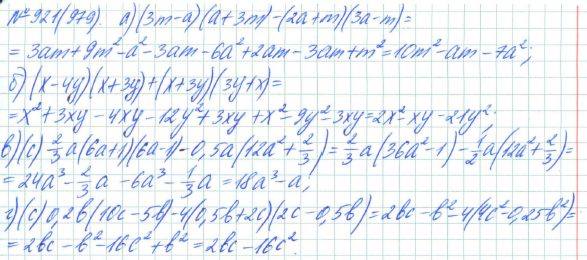 № 921(979). а) (3m-a)(a+3m)-(2a+m)(3a-m)=
= 3am+9m²-a²-3am-6a²+2am-3am+m²=10m²-am-7a²;
б) (x-4y)(x+3y)+(x+3y)(3y+x)=
= x²+3xy-4xy-12y²+3xy+x²-9y²-3xy=2x²-xy-21y²;
в)(с) 2/3 a(6a+1)(6a-1)-0,5a(12a²+2/3)=2/3 a(36a²-1)-1/2 a(12a²+2/3)=
= 24a³-2/3 a-6a³-1/3 a=18a³-a;
г)(с) 0,2b(10c-5b)-4(0,5b+2c)(2c-0,5b)=2bc-b²-4(4c²-0,25b²)=
= 2bc-b²-16c²+b²=2bc-16c².